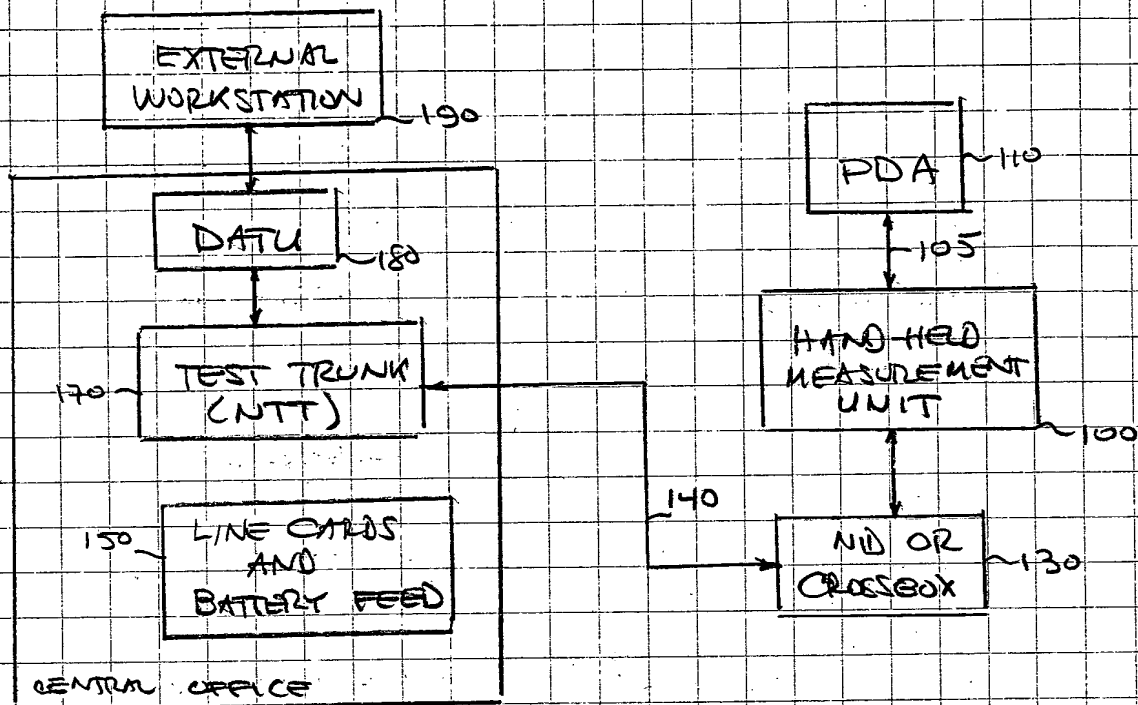 EXTERNAL
WORKSTATION
190
DATU
180
TEST TRUNK
(NTT)
170
LINE CARDS
AND
BATTERY FEED
150
CENTRAL OFFICE
PDA
110
105
HAND-HELD
MEASUREMENT
UNIT
100
140
NID OR
CROSSBOX
130